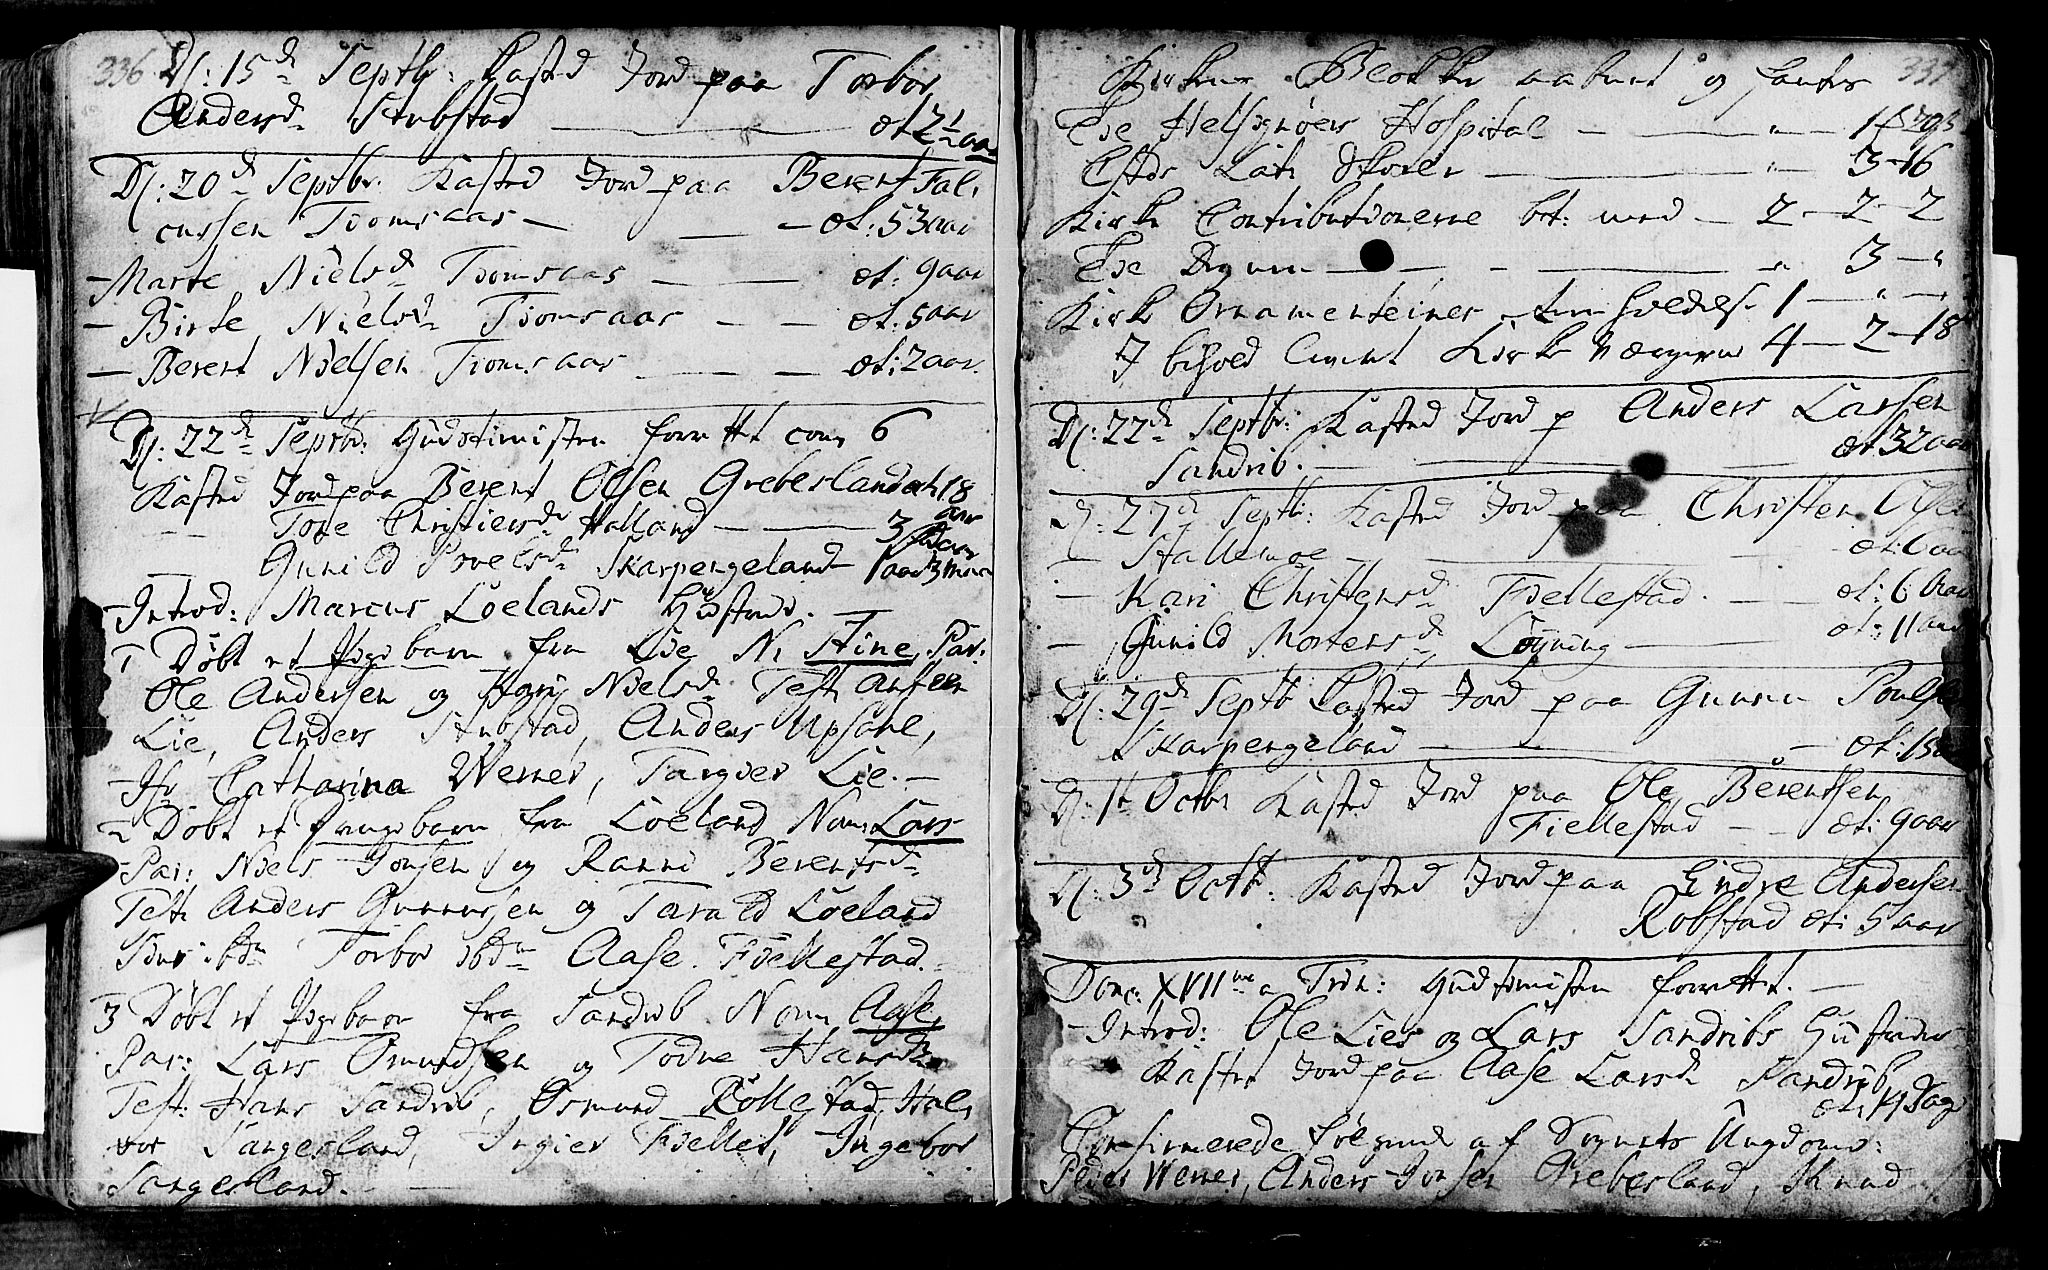 336
D: 15d Septbr: Kasted Jord paa Torbor
Andersd Stubstad æt 2½ aar
D: 20d Septbr. Kasted Jord paa Berent Tal-
cussen Tiomsaas æt: 53 aar
Marte Nielsd Tiomsaas æt: 9 aar
Birte Nielsd Tiomsaas æt: 5 aar
Berent Nielsen Tiomsaas æt: 2 aar
D: 22d Septbr: Gudstienisten forrettet com 6
Kasted Jord paa Berent Olsen Greberland æt 18 aar
Tore Christiensd Halland 3
Gunild Povelsd Skarpengeland 1 aar 3 m
Introd: Marcus Löelands Hustrue.
1 Döbt et Pigebarn fra Lie N: Stine, Par:
Ole Andersen og Nielsd Test:
Lie, Anders Stubstad, Anders Upsahl,
Jfr Catharina Werner, Targier Lie.
2 Döbt et Drengebarn fra Löeland Nom: Lars
Par: Niels Jonsen og Ranni Berentsd
Test: Anders Gunnersen og Tarald Löeland
ibdm Torbor ibdm Aase Fiellestad.
3 Döbt et Pigebarn fra Sandrib Nom: Aase
Par: Lars Omundsen og Todne Hansd
Test: Hans Sandrib, Osmund Röllestad, Hal-
vor Sangesland, Ingier Fiellest, Ingebor
Sangesland.
337
Kirkens Blokke aabnet og fantes
Til Helsignöers Hospital
3-16
Kirke Contributionerne bet: med 2-2-2
Til 3-"
Kirke Ornamenteines 1-"-"
J behold Kirke Værgerne 4-2-18
D: 22d Septbr: Kasted Jord p Anders Larsen
Sandrib. æt 32 aar
D: 27d Septbr: Kasted Jord paa Christen Olsen
Stallemoe æt: 6 aar
Kari Christensd Fiellestad. æt: 6 Aar
Gunild Mortensd Lögning æt: 11 aar
D: 29d Septb Kasted Jord paa Gunen Poulse
Skarpengeland
D: 1t Octbr Kasted Jord paa Ole Berentsen
Fiellestad æt: 9 aar
D: 3d Octb: Kasted Jord paa Endre Andersen
Robstad æt: 5 aar
Dom: XVIIma Trin: Gudstienisten forrettet.
Introd: Ole Lies og Lars Sandribs Hustruer
Kasted Jord paa Aase Larsd Sandrib
æt: 14 Dage
Confirmerede fölgende af Sognets Ungdom:
Peder Werner, Anders Jonsen Greberland, Knud